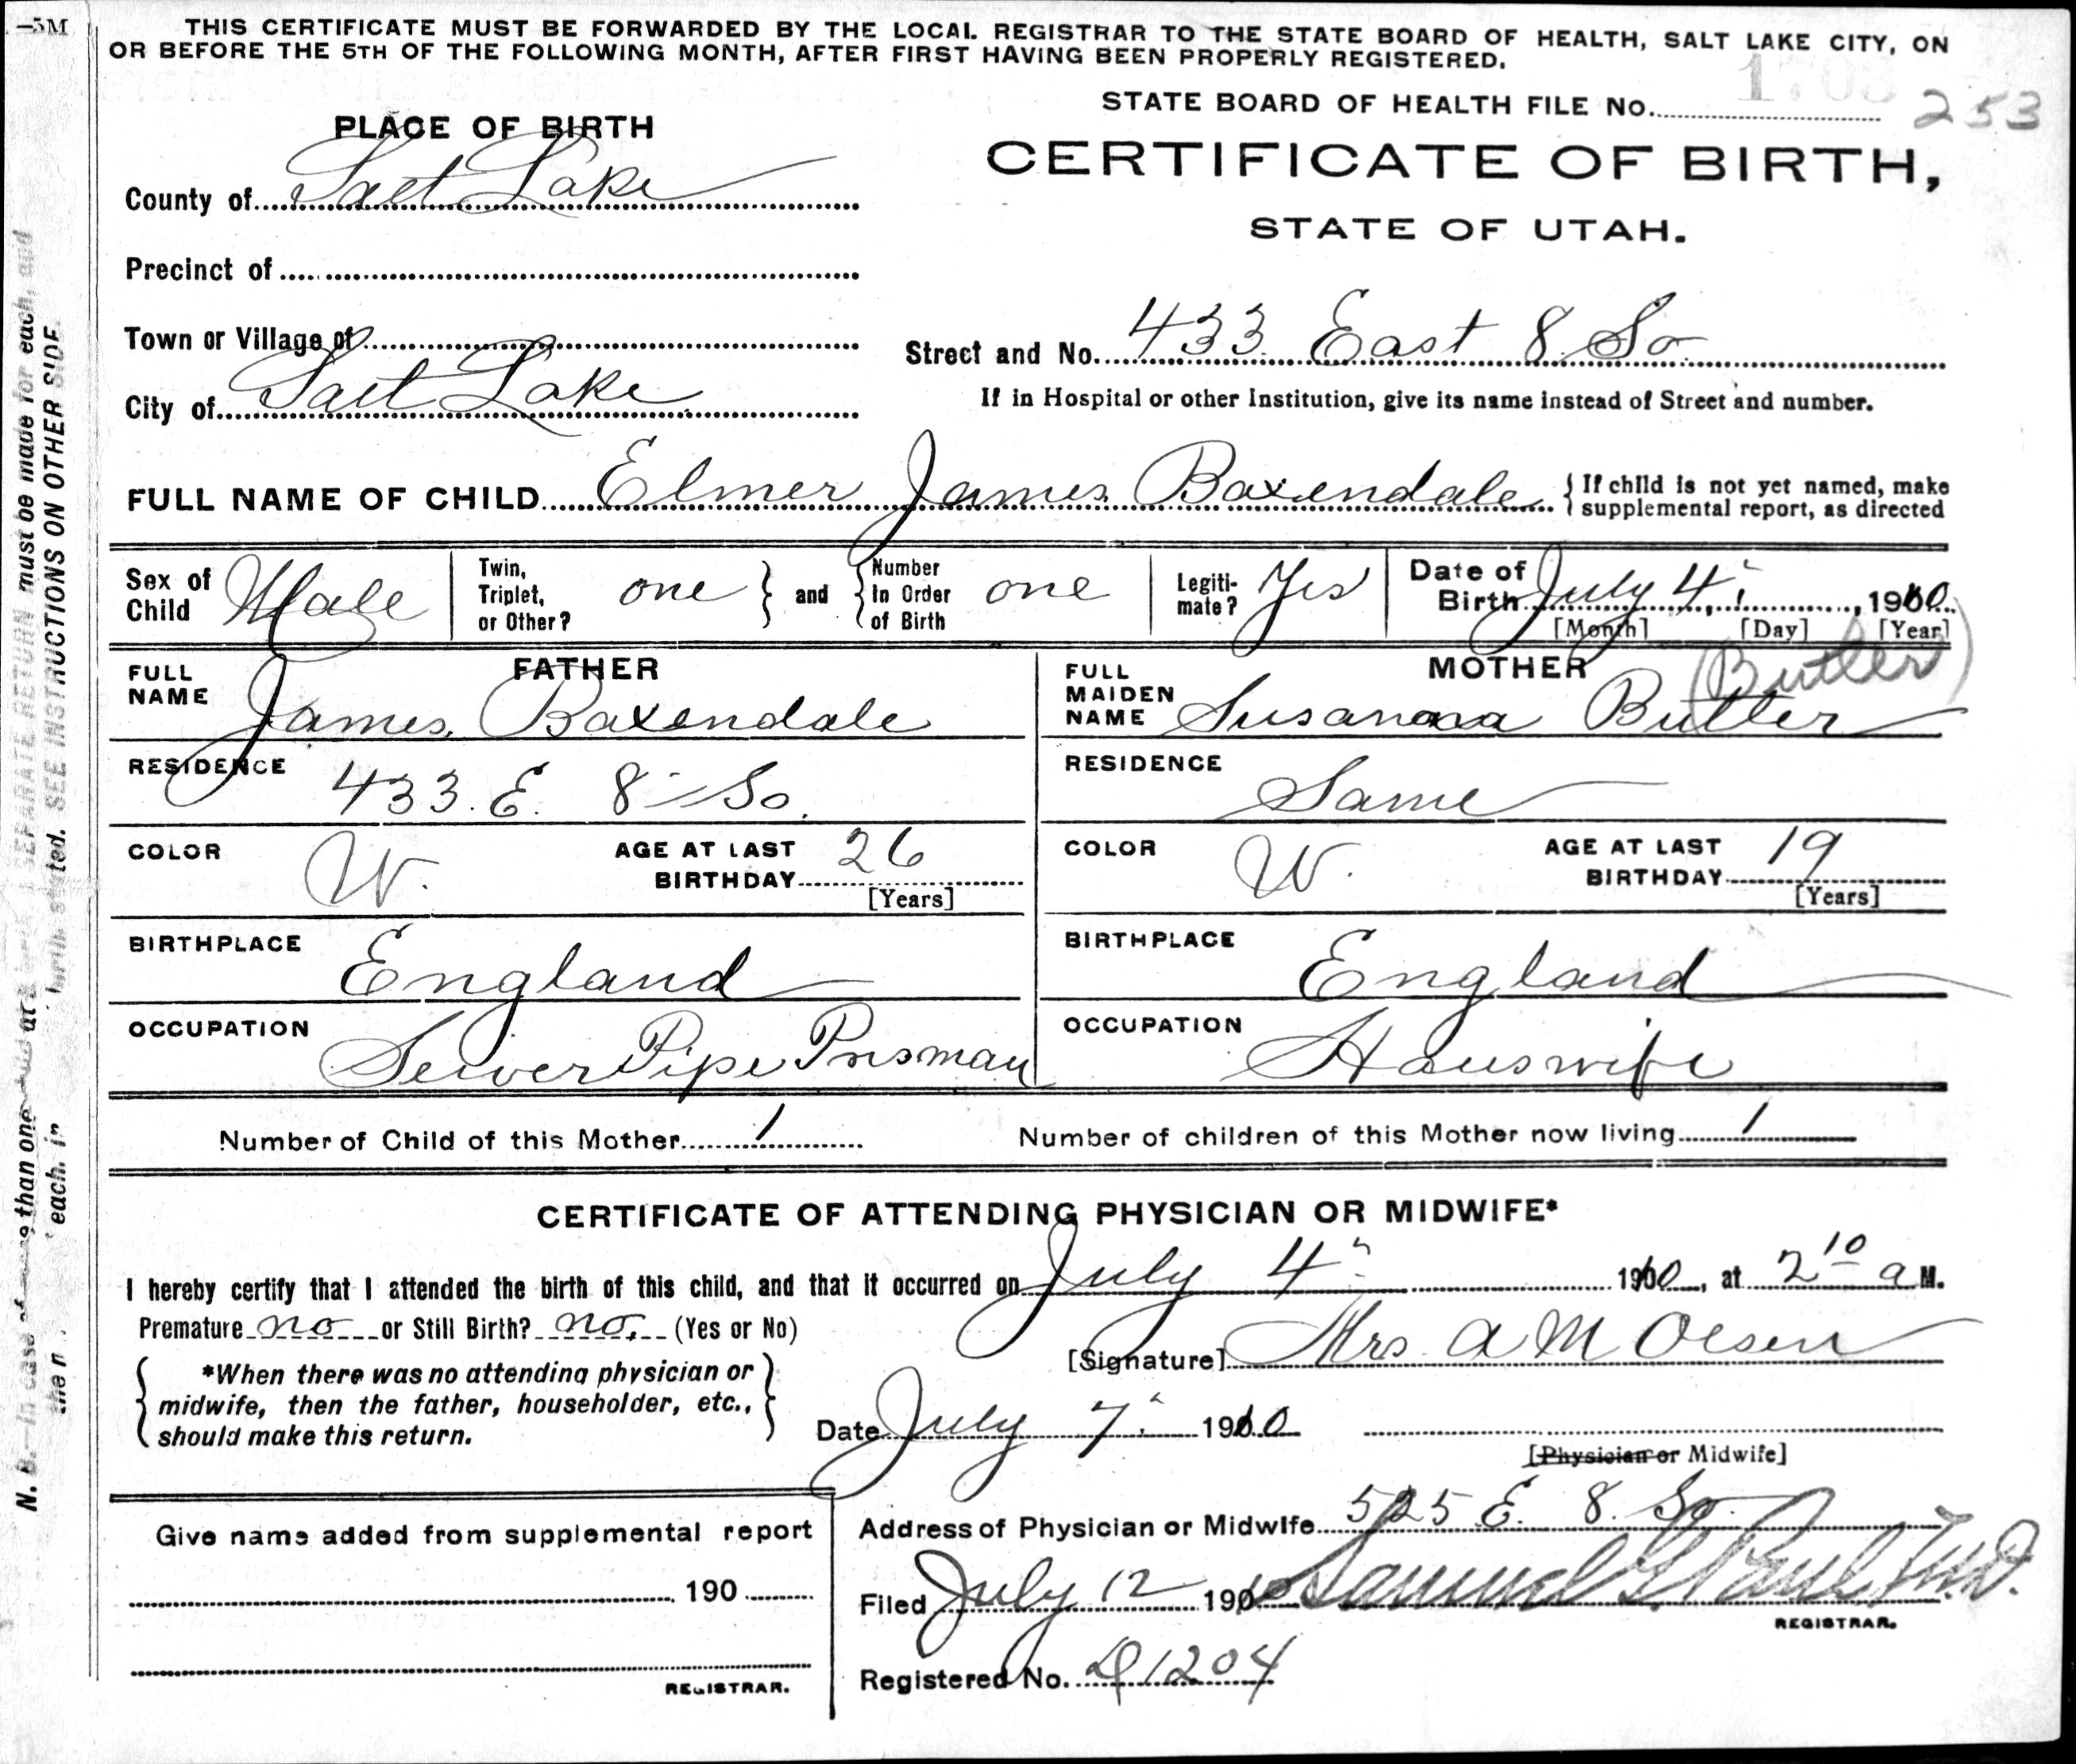 —5M
THIS CERTIFICATE MUST BE FORWARDED BY THE LOCAL REGISTRAR TO THE STATE BOARD OF HEALTH, SALT LAKE CITY, ON
OR BEFORE THE 5TH OF THE FOLLOWING MONTH, AFTER FIRST HAVING BEEN PROPERLY REGISTERED.
STATE BOARD OF HEALTH FILE No. 253
PLACE OF BIRTH
CERTIFICATE OF BIRTH,
STATE OF UTAH.
County of Salt Lake
Precinct of
Town or Village of
Street and No. 433 East 8 So
City of Salt Lake
If in Hospital or other Institution, give its name instead of Street and number.
FULL NAME OF CHILD Elmer James Baxendale { If child is not yet named, make
supplemental report, as directed
Sex of Child Male
Twin, Triplet, or Other? one } and { Number In Order of Birth one
Legiti-mate? Yes
Date of Birth July 4", 1910
[Month] [Day] [Year]
FATHER
FULL NAME James Baxendale
MOTHER (Butler)
FULL MAIDEN NAME Susanna Butler
RESIDENCE 433. E. 8 So.
RESIDENCE Same
COLOR W. AGE AT LAST BIRTHDAY 26 [Years]
COLOR W. AGE AT LAST BIRTHDAY 19 [Years]
BIRTHPLACE England
BIRTHPLACE England
OCCUPATION Sewer Pipe Presman
OCCUPATION Houswife
Number of Child of this Mother 1
Number of children of this Mother now living 1
CERTIFICATE OF ATTENDING PHYSICIAN OR MIDWIFE*
I hereby certify that I attended the birth of this child, and that it occurred on July 4" 1910, at 2 10 a M.
Premature no or Still Birth? no. (Yes or No)
[Signature] Mrs A M Olsen
*When there was no attending physician or
midwife, then the father, householder, etc.,
should make this return.
Date July 7" 1910
[Physician or Midwife]
Address of Physician or Midwife 525 E. 8. So.
Give name added from supplemental report
190
REGISTRAR.
Filed July 12 1910 Samuel G. Paul, M.D.
REGISTRAR.
Registered No. 1204
N. B.—In case of more than one child at a birth, a SEPARATE RETURN must be made for each, and
the n each, in birth stated. SEE INSTRUCTIONS ON OTHER SIDE.